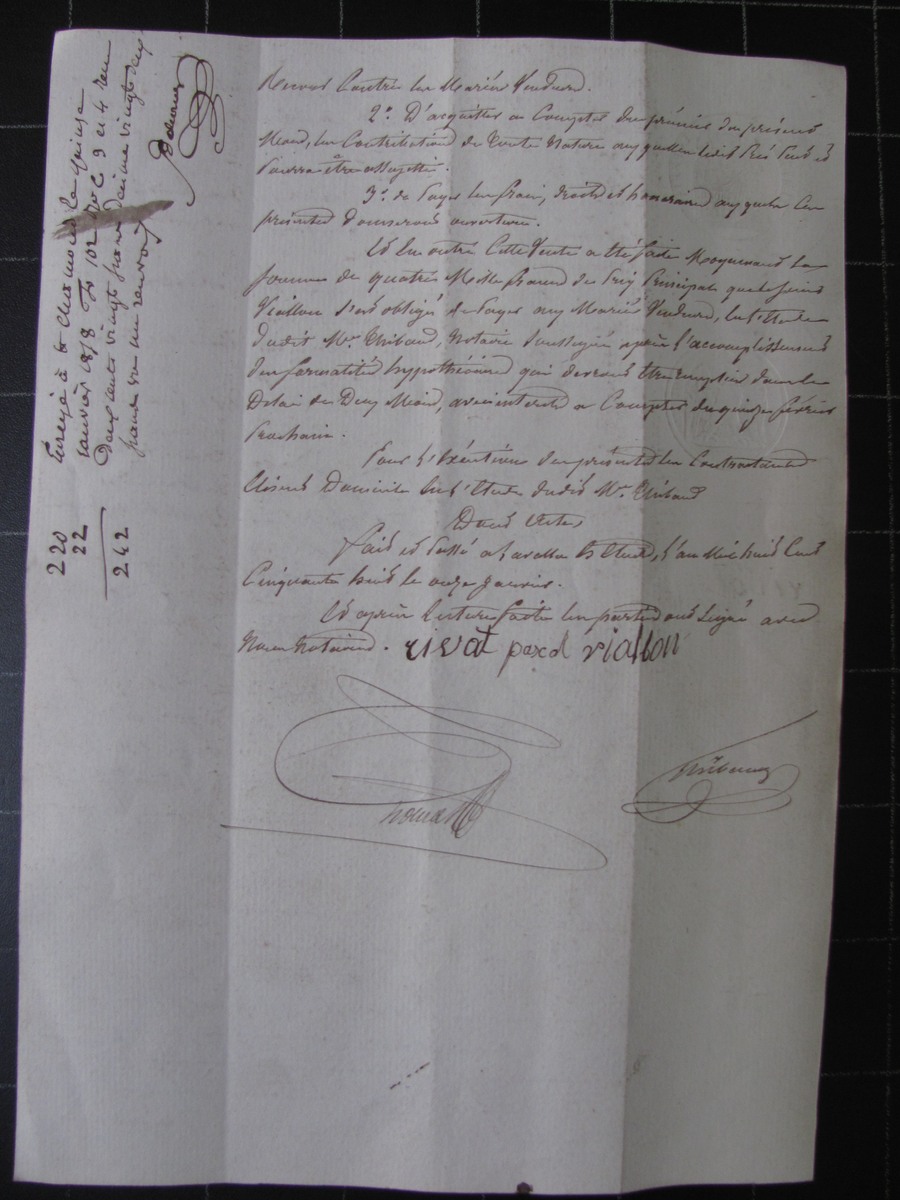 Recours contre les Mariés Vendeurs.
2o. D'acquitter a Compter du premier du présent
Mois, les Contributions de toute Nature auxquelles ledit Pré sera et
pourra être assujetti.
3o. de payer les frais, droits et honoraires auxquels les
présentes donneront ouverture.
Et En outre Cette Vente a été faite Moyennant la
somme de quatre Mille francs de Prix Principal que le sieur
Viallon s'est obligé de payer aux Mariés Vendeurs, en l'étude
dudit Me. Thibaud, Notaire Soussigné après l'accomplissement
des formalités hypothécaires qui devront être remplies dans le
Délai de Deux Mois, avec intérêts a Compter du quinze février
Prochain.
Pour l'Exécution des présentes les Contractants
Elisent Domicile En l'Etude dudit Me. Thibaud
Dont Acte
fait et Passé a En l'Etude, l'an Mil huit Cent
Cinquante huit le onze Janvier.
Et après lecture faite les parties ont Signé avec
Nous Notaires. rivat viallon
Thibaud
Enregé à le quinze
Janvier 1858 Fo 102 Vo C 9 et 4 reçu
Deux cents vingt francs décime vingt deux
francs un renvoi
220
22
242